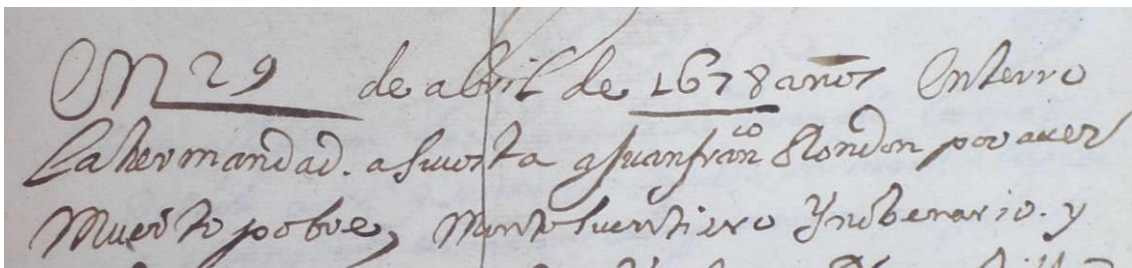 En 29 de abril de 1678 años Enterro
La hermandad. a su costa a Juan fran.co Rondon por aver
Muerto pobre, Monto su entierro Y nobenario. y